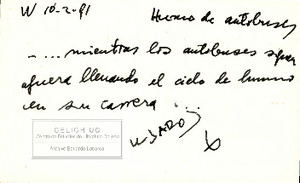 W 10-2-91 Humo de autobuses
"... mientras los autobuses siguen
afuera llenando el cielo de humo
en su carrera ..."
CELICH UC
Centro de Estudios de Literatura Chilena
Archivo Gonzalo